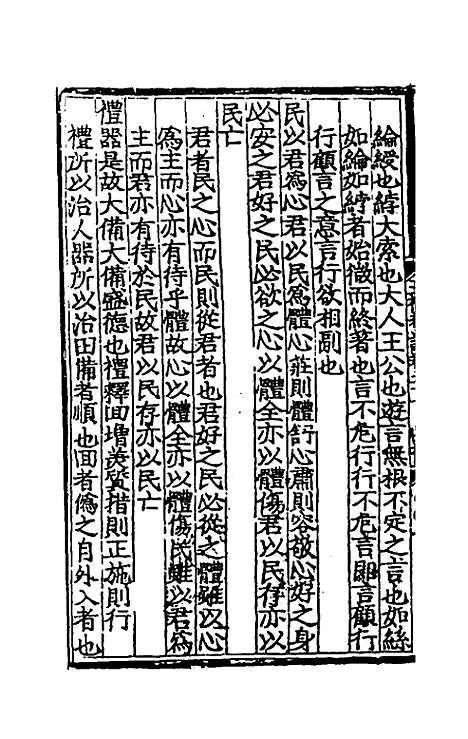 綸綬也綍大索也大人王公也遊言無根不定之言也如絲
如綸如綍者始微而終著也言不危行行不危言即言顧行
行顧言之意言行欲相副也
民以君爲心君以民爲體心莊則體舒心肅則容敬心好之身
必安之君好之民必欲之心以體全亦以體傷君以民存亦以
民亡
君者民之心而民則從君者也君好之民必從之體雖以心
爲主而心亦有待乎體故心以體全亦以體傷民雖以君爲
主而君亦有待於民故君以民存亦以民亡
禮器是故大備大備盛德也禮釋回增美質措則正施則行
禮所以治人器所以治田備者順也回者僞之自外入者也